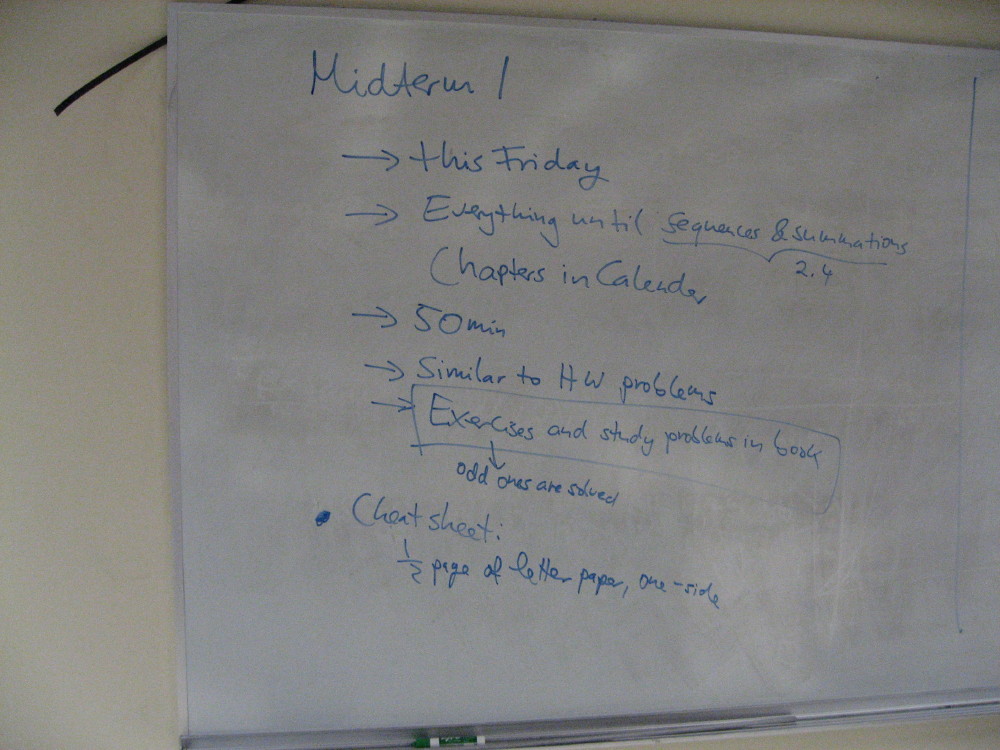 Midterm 1
→ this Friday
→ Everything until sequences & summations
2.4
Chapters in Calender
→ 50min
→ Similar to HW problems
→ Exercises and study problems in book
↓
odd ones are solved
• Cheat sheet:
1/2 page of letter paper, one-side